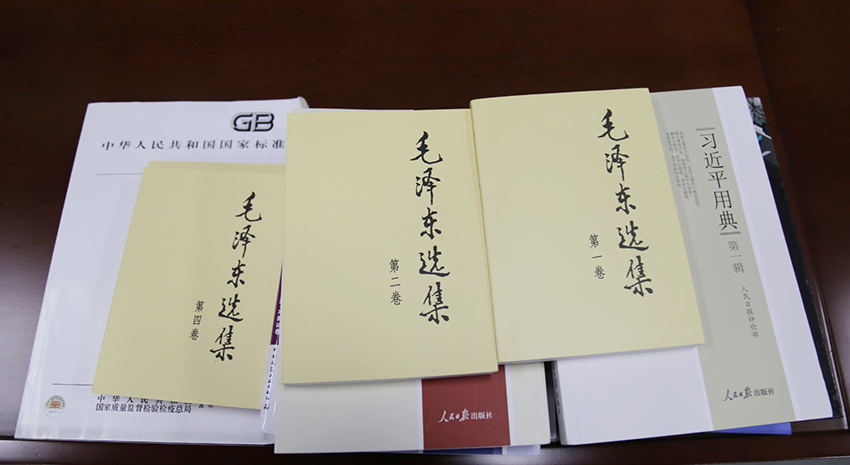 GB
中华人民共和国国家标准
毛泽东选集
第四卷
中华人民共
国家质量监督检验检疫总局
毛泽东选集
第二卷
人民日报出版社
毛泽东选集
第一卷
习近平用典
第一辑
人民日报评论部
人民日报出版社